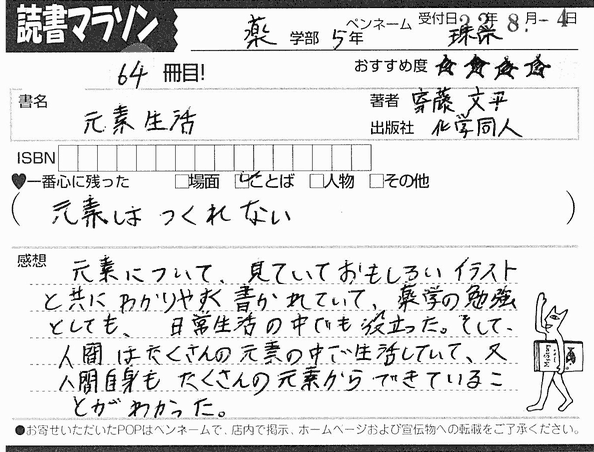 読書マラソン
薬 学部 5年 ペンネーム 珠栄 受付日 22年 8.月-4日
64 冊目! おすすめ度 ★★★★
書名 元素生活
著者 寄藤 文平
出版社 化学同人
ISBN
♥一番心に残った □場面 ☑ことば □人物 □その他
(元素は つくれない)
感想 元素について、見ていておもしろいイラスト
と共に わかりやすく 書かれていて、薬学の勉強
としても、日常生活の中でも役立った。そして、
人間はたくさんの元素の中で生活していて、又
人間自身も たくさんの元素から できているこ
とが わかった。
●お寄せいただいたPOPはペンネームで、店内で掲示、ホームページおよび宣伝物への転載をご了承ください。